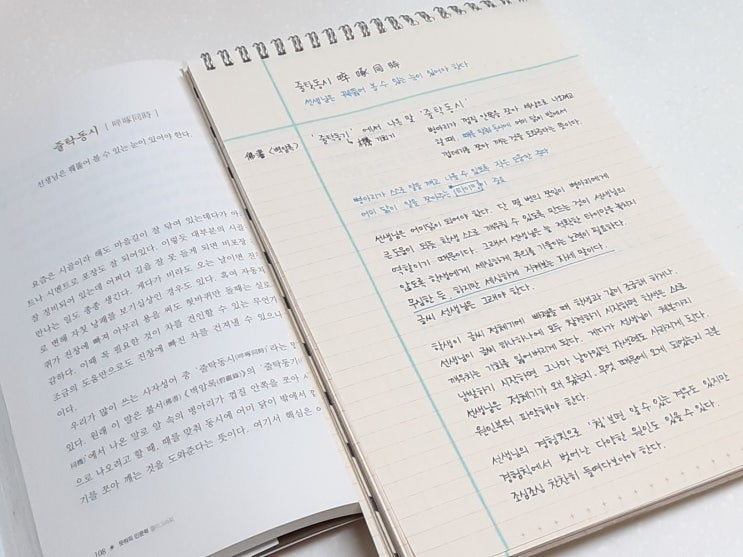 줄탁동시 [啐啄同時]
선생님은 꿰뚫어 볼 수 있는 눈이 있어야 한다.
요즘은 시골이라 해도 마을길이 잘 닦여 있는데다가 아
트나 시멘트로 포장도 잘 되어있다. 이렇듯 대부분의 시골
잘 정비되어 있는데 어쩌다 길을 잘 못 들게 되면 비포장
만나는 일도 종종 생긴다. 게다가 비라도 오는 날이면 진
로 변해 자칫 낭패를 보기십상인 경우도 있다. 혹여 자동차
퀴가 진창에 빠져 아무리 용을 써도 헛바퀴만 돌때는 실로
감하다. 이때 꼭 필요한 것이 차를 견인할 수 있는 무언가
조금의 도움만으로도 진창에 빠진 차를 건져낼 수 있으니
이다.
우리가 많이 쓰는 사자성어 중 '줄탁동시'라는 말
있다. 원래 이 말은 불서(佛書) 《벽암록》의 '줄탁동기
에서 나온 말로 알 속의 병아리가 껍질 안쪽을 쪼아
으로 나오려고 할 때, 때를 맞춰 동시에 어미 닭이 밖에서 껍
기를 쪼아 깨는 것을 도와준다는 뜻이다. 여기서 핵심은
108
줄탁동시 啐啄同時
선생님은 꿰뚫어 볼 수 있는 눈이 있어야 한다.
佛書 <벽암록>
'줄탁동기'에서 나온 말 '줄탁동시'
병아리가 껍질 안쪽을 쪼아 세상으로 나오려고
할 때, 때를 맞춰 동시에 어미 닭이 밖에서
껍데기를 쪼아 깨는 것을 도와준다는 뜻이다.
병아리가 스스로 알을 깨고 나올 수 있도록 작은 도움만 준다
어미 닭이 알을 쪼아주는 타이밍 중요
선생님은 어미닭이 되어야 한다. 단 몇 번의 쪼임이 병아리에게
큰 도움이 되듯 학생 스스로 깨우칠 수 있도록 만드는 것이 선생님의
역할이기 때문이다. 그래서 선생님은 늘 적확한 타이밍을 놓치지
않도록 학생에게 세심하게 주의를 기울이는 노력이 필요하다.
무심한 듯, 하지만 세심하게 지켜보는 자세 말이다.
글씨 선생님은 그래야 한다.
학생이 글씨 정체기에 빠졌을 때 학생과 같이 조급해 하거나
선생님이 글씨 하나하나에 모두 참견하기 시작하면 학생은 스스로
깨우치는 기회를 잃어버리게 된다. 게다가 선생님이 체본까지
남발하기 시작하면 그나마 남아있던 자생력도 사라지게 된다.
선생님은 정체기가 왜 왔는지, 무엇 때문에 오게 되었는지 근본
원인부터 파악해야 한다.
선생님의 경험치으로 '척 보면 알 수 있는 경우도 있지만
경험치에서 벗어난 다양한 원인도 있을 수 있다.
조심조심 찬찬히 들여다보아야 한다.